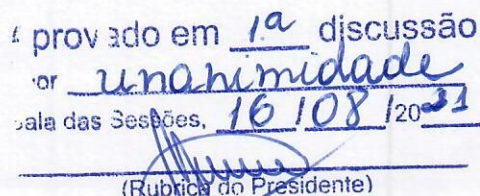 provado em 1ª discussão
or unanimidade
ala das Sessões, 16 / 08 /20
(Rubrica do Presidente)